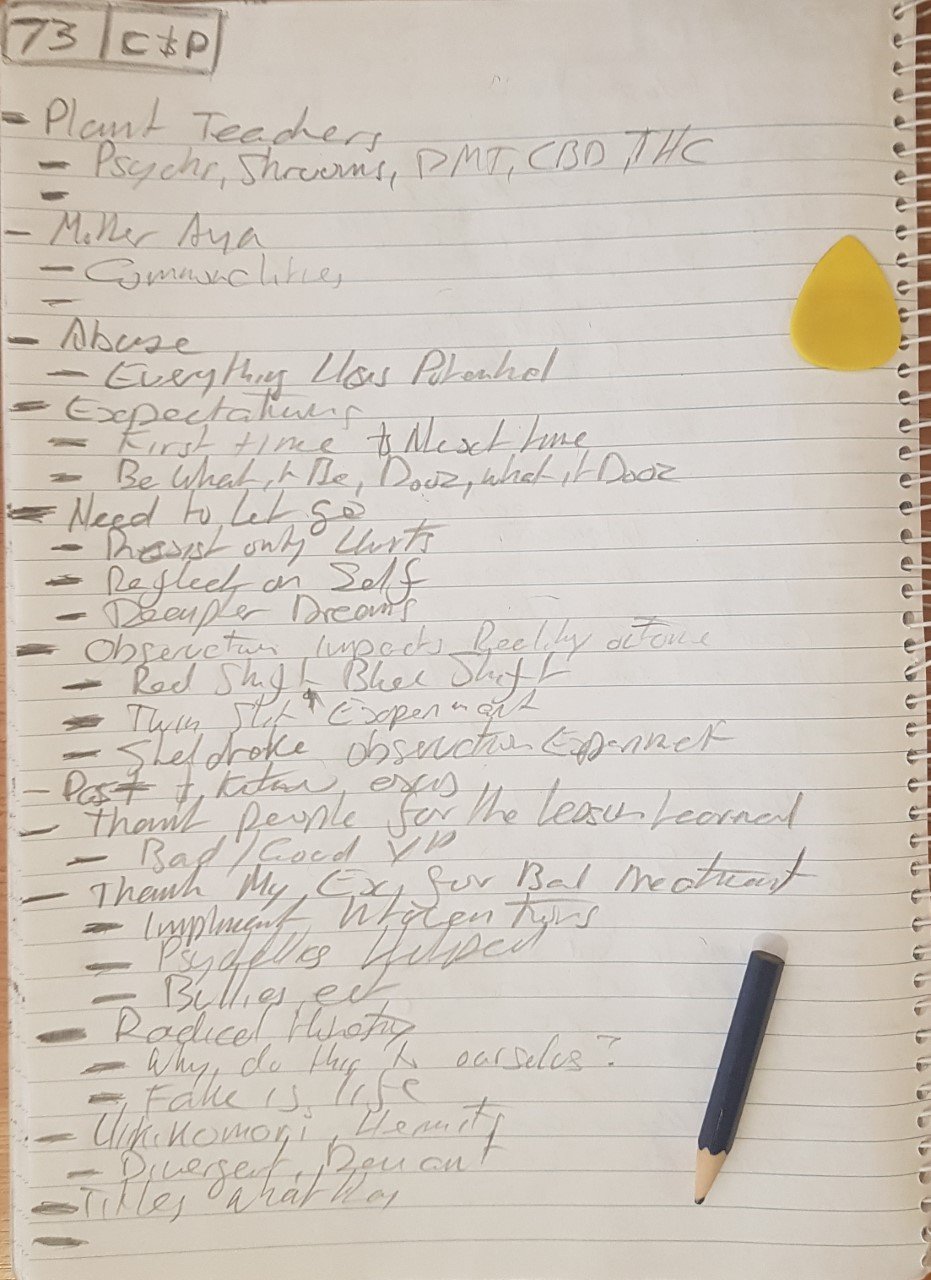 73 | C & P
- Plant Teachers
- Psychs, Shrooms, DMT, CBD, THC
-
- Mother Aya
- Commonalities
-
- Abuse
- Everything Has Potential
- Expectations
- First time to Next time
- Be What it Be, Dooz, what it Dooz
- Need to Let go
- Resist only Hurts
- Reflect on Self
- Deeper Dreams
- Observation Impacts Reality
- Red Shift Blue Shift
- Twin Slit Experiment
- Sheldrake observation Experiment
- Past
- Thank People for the Lesson Learned
- Bad/Good
- Thank My Ex, for Bad
- Implment
- Psydelics Helped
- Bullies, ect
- Radical Honesty
- Why, do this to ourselves?
- Fake is life
- Hikikomori, Hermits
- Divergent, Deviant
- Titles what
-